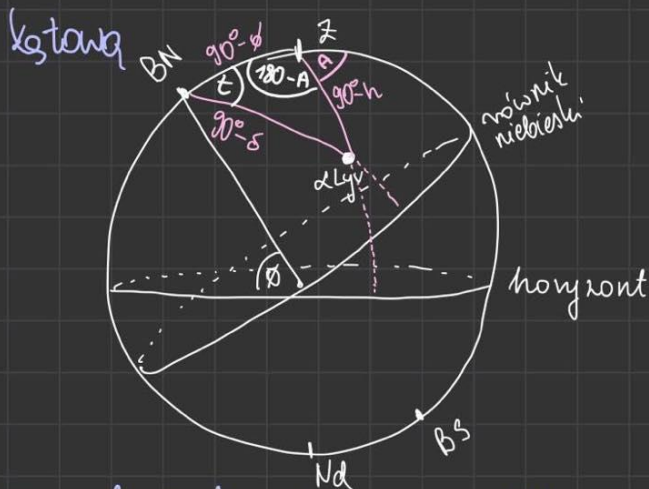 kątową
BN
90°-ϕ
Z
t
180-A
A
90°-h
90°-δ
αLyr
równik
niebieski
ϕ
horyzont
BS
Nd